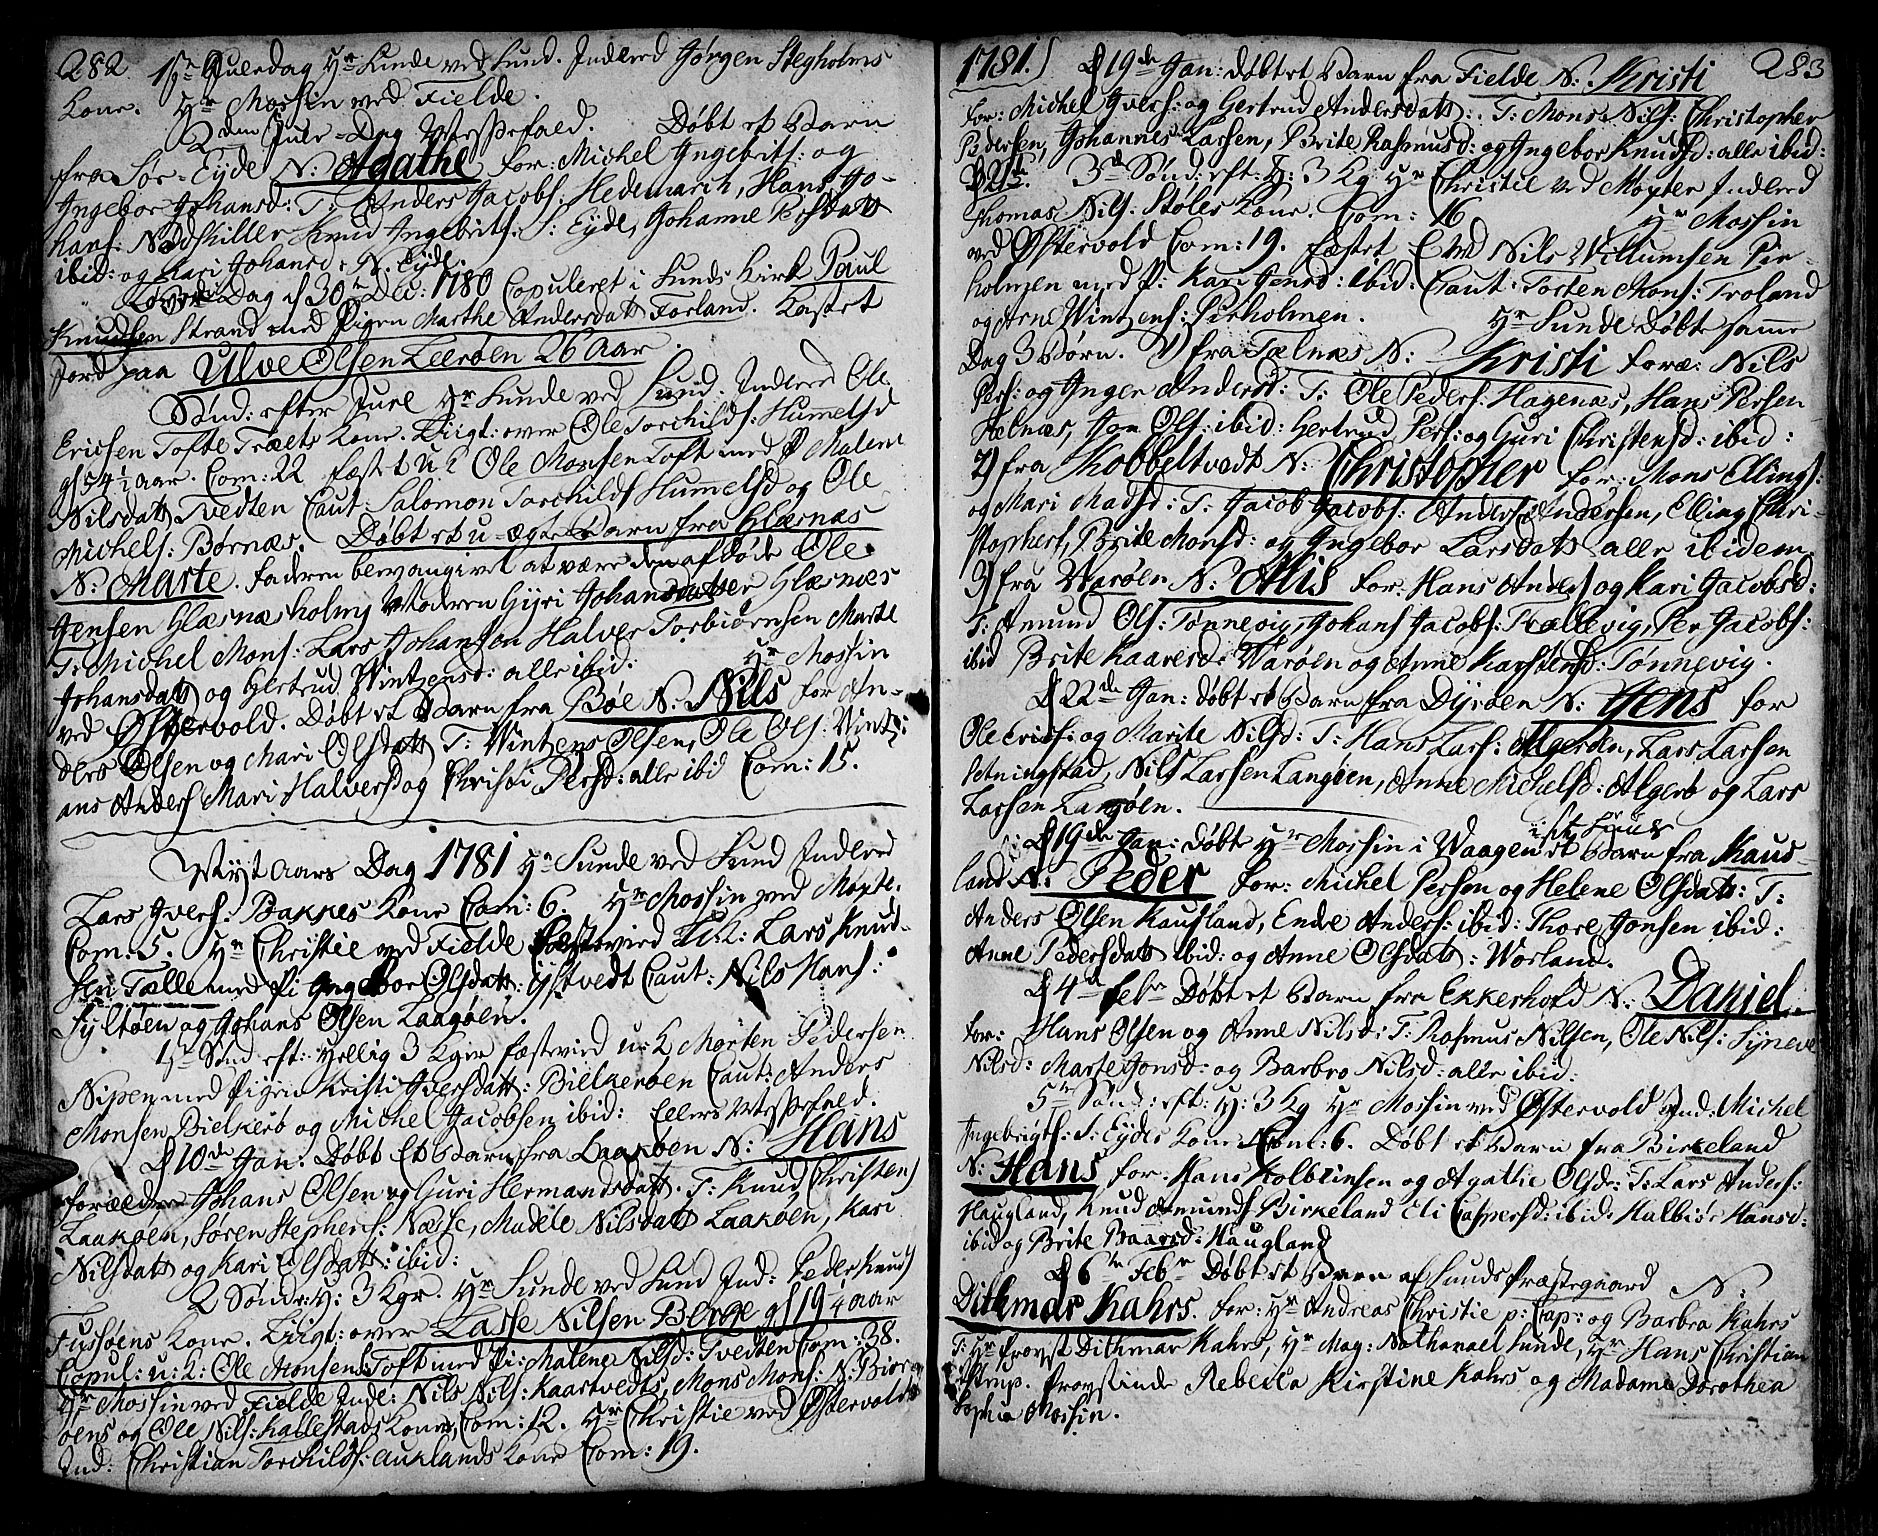 282 1ste Juledag Hr Sunde ved Sund. Indleed Jørgen Stegholms
Kone. Hr Mossin ved Fielde.
2den Jule-Dag Messefald. Døbt et Barn
fra Sør-Eyde N: Agathe for: Michel Ingebrits: og
Ingebor Johansd: T: Anders Jacobs: Hedemarck, Hans Jo-
hans: Nødskiller Knud Ingebrits: S: Eyde, Johanne Persdatt
ibid: og Kari Johansd: N: Eyde.
Løverdag d 30te Dec: 1780 Copuleret i Sunds Kirke Paul
Knudsen Strand med Pigen Marthe Andersdatt Forland. Kastet
Jord paa Ulve Olsen Leerøen 26 Aar.
Sønd: efter Juel Hr Sunde ved Sund. Indleed Ole
Ericsen Tofte Træets Kone. Liigt: over Ole Torchilds: Humelsd
gl 54 1/2 aar. Com: 22 fæstet U: K Ole Monsen Toft med P Malene
Nilsdatt Tvedten Caut: Salomon Torchilds Hummelsd og Ole
Michels: Børnæs. Døbt et u-ægte Barn fra Glærnæs
N: Marte. Faderen blev angivet at være den afdøde Ole
Jensen Glæsnæsholm, Moderen Gyri Johansdatter Glæsnæs
T: Michel Mons: Lars Johansen Halver Torbiørnsen Marte
Johansdatt og Gertrud Wintzensd: alle ibid: Hr Mossin
ved Østervold. Døbt et Barn fra Bøe N: Nils for An-
ders Olsen og Mari Olsdatt T: Wintzens Olsen, Ole Ols: Vintz:
ans Anders Mari Halversd og Christi Persd: alle ibid Com: 15.
Nyt Aars Dag 1781 Hr Sunde ved Sund Indleed
Lars Ivers: Bakkes Kone Com: 6. Hr Mossin ved Møgte.
Com: 5. Hr Christie ved Fielde Fæstevird U: K: Lars Knud-
sen Tælle med Pi Ingebor Olsdatt: Ystvedt Caut: Nils Hans:
Syltøen og Johans Olsen Laagøen.
1te Sønd eft: Hellig 3 Kger fæstvird u: K Morten Pedersen
Nipen med Pigen Kristi Iversdatt: Bielkerøen Caut: Anders
Monsen Bielkerø og Michel Jacobsen ibid: Ellers Messefald.
D 10de Jan: Døbt Et Barn fra Laakøen N: Hans
forældre Johans Olsen og Guri Hermandsdatt. T: Knud Christen)
Laakøen, Søren Stephens: Næsse, Madele Nilsdatt Laakøen, Kari
Nilsdatt og Kari Olsdatt: ibid:
2 Sønd: H: 3 Kgr. Hr Sunde ved Sund Ind: Peder Knud)
Tussøens Kone. Liigt: over Lasse Nilsen Berge gl 19 1/4 aar
Copul: u: K: Ole Monsen Toft med Pi: Malene Nilsd: Tvedten Com: 38.
Hr Mossin ved Fielde Inde: Nils Nils: Kaartvedts, Mons Mons: N: Biør-
øens og Ole Nils: Kallestads Koner, Com: 12. Hr Christie ved Østervold
Ind: Christian Torchilds: Auklands Kone Com: 19.
1781. D 19de Jan: døbt et Barn fra Fielde N: Kristi 283
for: Michel Ivers: og Gertrud Andersdatt: T: Mons Nils: Christopher
Pedersen, Johannes Larsen, Brite Rasmusd: og Ingebor Knudsd: alle ibid:
D 21de. 3de Sønd: eft: H: 3 Kg Hr Christie ved Møgster Indleed
Thomas Nils: Støles Kone. Com: 16 Hr Mossin
ved Østervold Com: 19. fæstet Nils Willumsen Pir-
holmen med P: Kari Jensd: ibid: Caut: Torten Mons: Troland
og Arne Wintzens: Pirholmen. Hr Sunde Døbte samme
Dag 3 Børn. 1) fra Tælnæs N: Kristi foræ: Nils
Pers: og Inger Andersd: T: Ole Peders: Hagenæs, Hans Persen
Telnæs, Jon Ols: ibid: Gertrud Pers: og Guri Christensd: ibid:
2) fra Kobbeltvedt N: Christopher for: Mons Elling):
og Mari Madsd: T: Jacob Jacobs: Anders Andersen, Elling Chri-
stophers, Brite Monsd: og Ingebor Larsdatt alle ibidem.
3) fra Warøen N: Alis for: Hans Anders) og Kari Jacobsd:
T: Amund Ols: Tønnevig, Johans Jacobs: Trællevig, Per Jacobs:
ibid Brite Kaaresd: Warøen og Anne Karstensd: Tønnevig.
D 22de Jan: døbt et Barn fra Dyrøen N: Jens for
Ole Erics: og Marite Nilsd: T: Hans Lars: Algerøen, Lars Larsen
Setningstad, Nils Larsen Langøen, Anne Michelsd: Algerø og Lars
Larsen Langøen.
D 19de Jan: Døbte Hr Mossin i Waagen i et huus et Barn fra Kaus-
land N: Peder for: Michel Persen og Helene Olsdatt: T:
Anders Olsen Kausland, Endre Anders: ibid: Thore Jonsen ibid:
Anne Pedersdatt ibid: og Anne Olsdatt: Worland.
D 4de Febr Døbt et Barn fra Ekkerhold N: Daniel
for: Hans Olsen og Anne Nilsd: T: Rasmus Nilsen, Ole Nils: Syneve
Nilsd: Marte Jonsd: og Barbro Nilsd: alle ibid:
5te Sønd: eft: H: 3 Kg Hr Mossin ved Østervold Ind: Michel
Ingebrigts: S: Eydes Kone Com: 6. Døbt et Barn fra Birkeland
N: Hans for: Hans Kolbeinsen og Agathe Olsd: T: Lars Anders:
Haugland, Knud Amunds Birkeland Eli Caspersd: ibid: Kulbiør Hansd:
ibid og Brite Baarsd: Haugland
D 6te Febr Døbt et Barn af Sunds Præstegaard N:
Dithmar Kahrs. for: Hr Andreas Christie p: Cap: og Barbra Kahrs
T: Hr Provst Dithmar Kahrs, Hr Mag: Nathanael Sunde, Hr Hans Christian
Provstinde Rebecca Kirstine Kahrs og Madame Dorothea
Sophia Mossin.